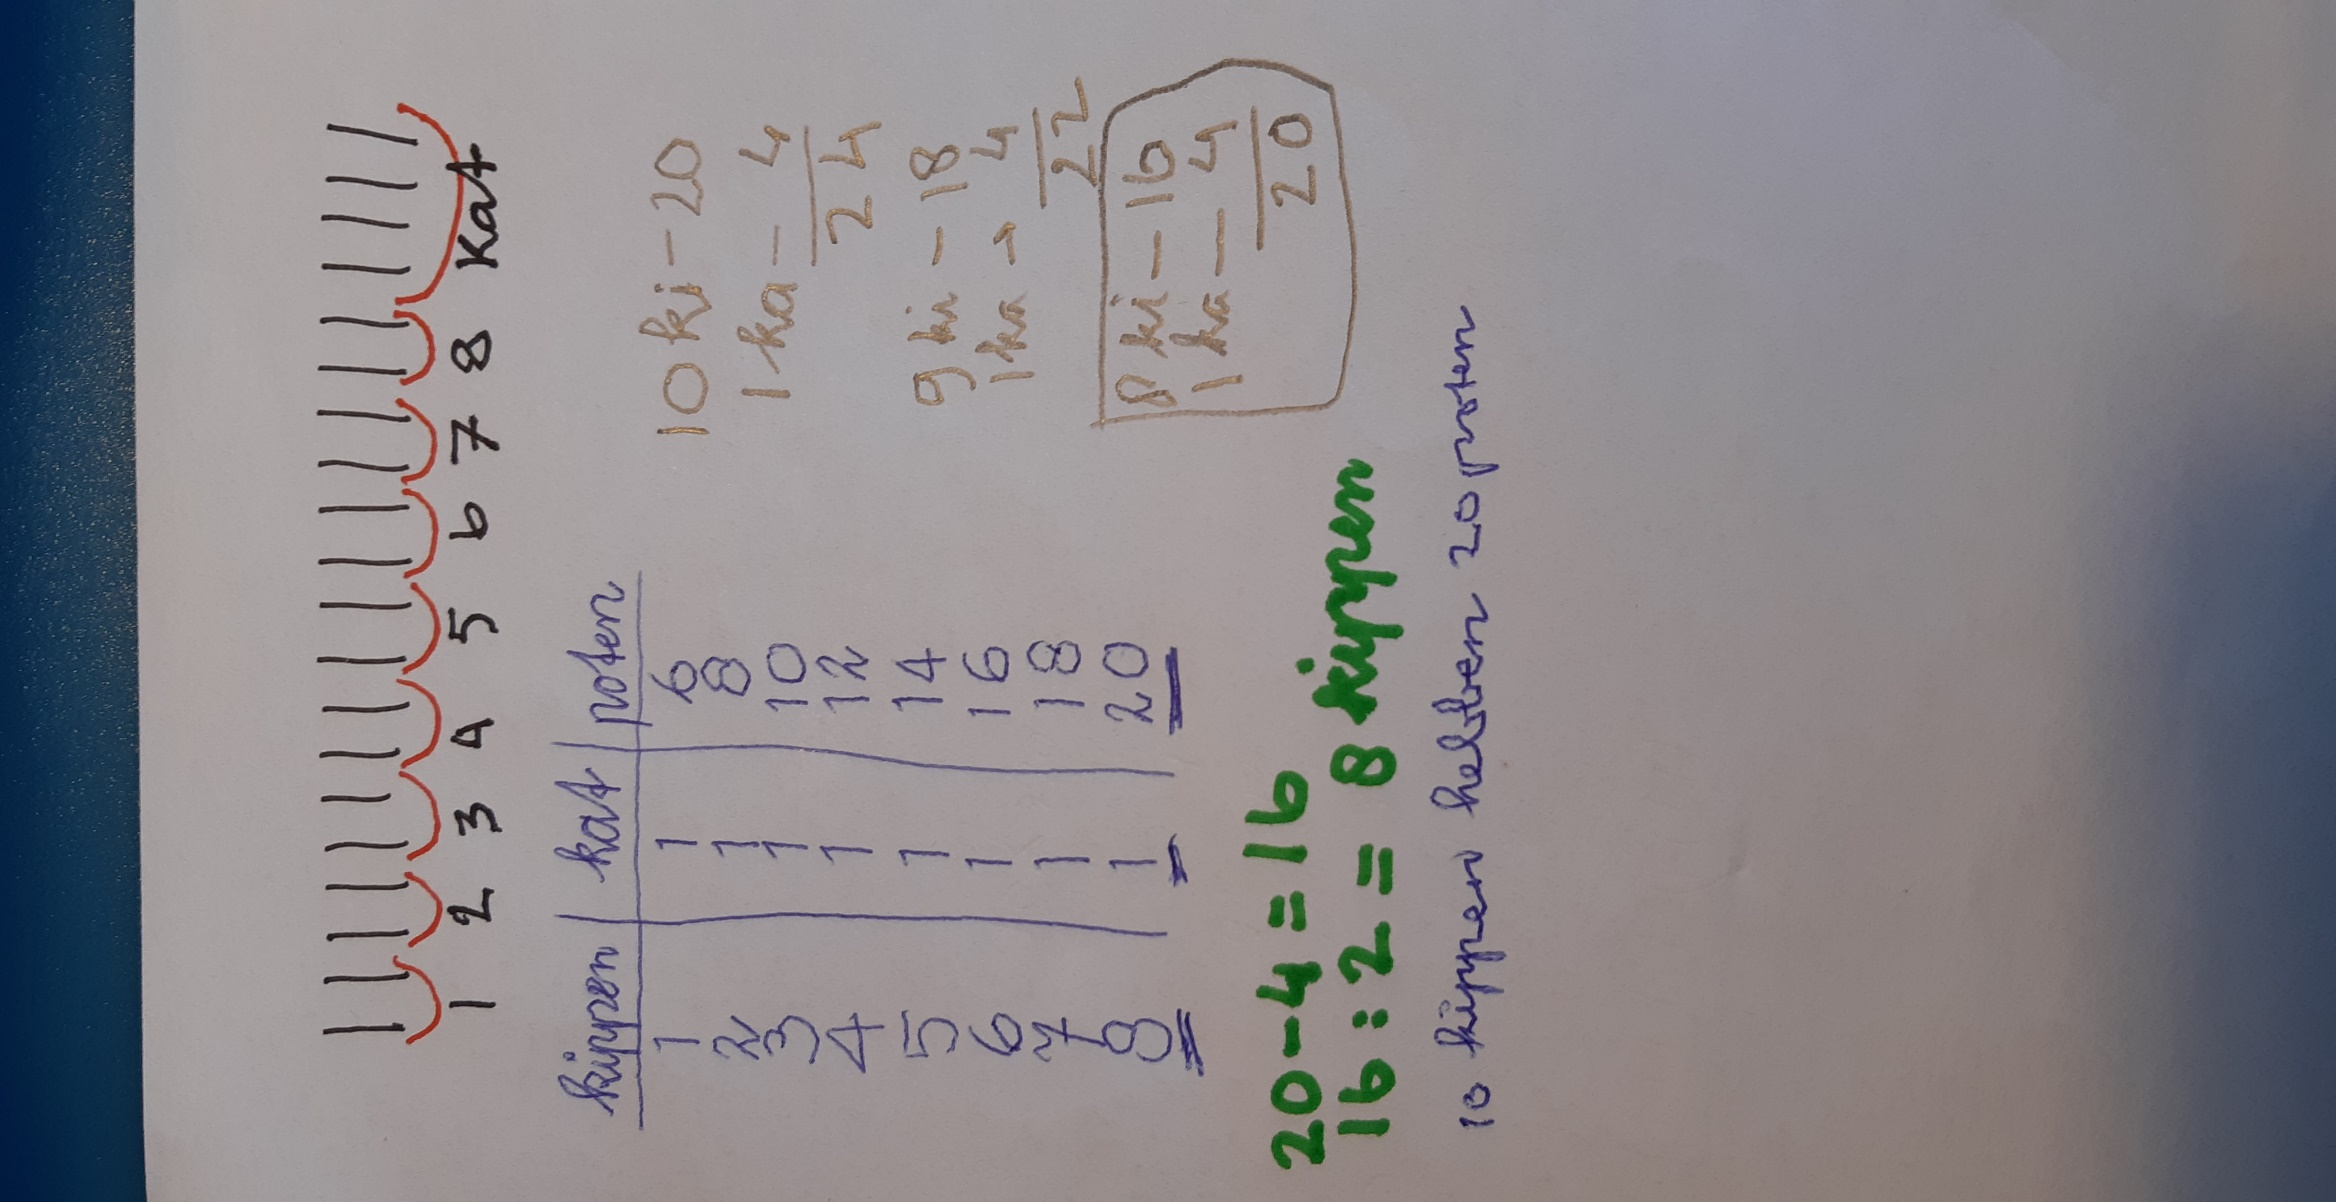 1 2 3 4 5 6 7 8 Kat
kippen | kat | poten
1 1 6
2 1 8
3 1 10
4 1 12
5 1 14
6 1 16
7 1 18
8 1 20
10 ki - 20
1 ka - 4
24
9 ki - 18
1 ka - 4
22
8 ki - 16
1 ka - 4
20
20-4=16
16:2=8 kippen
10 kippen hebben 20 poten